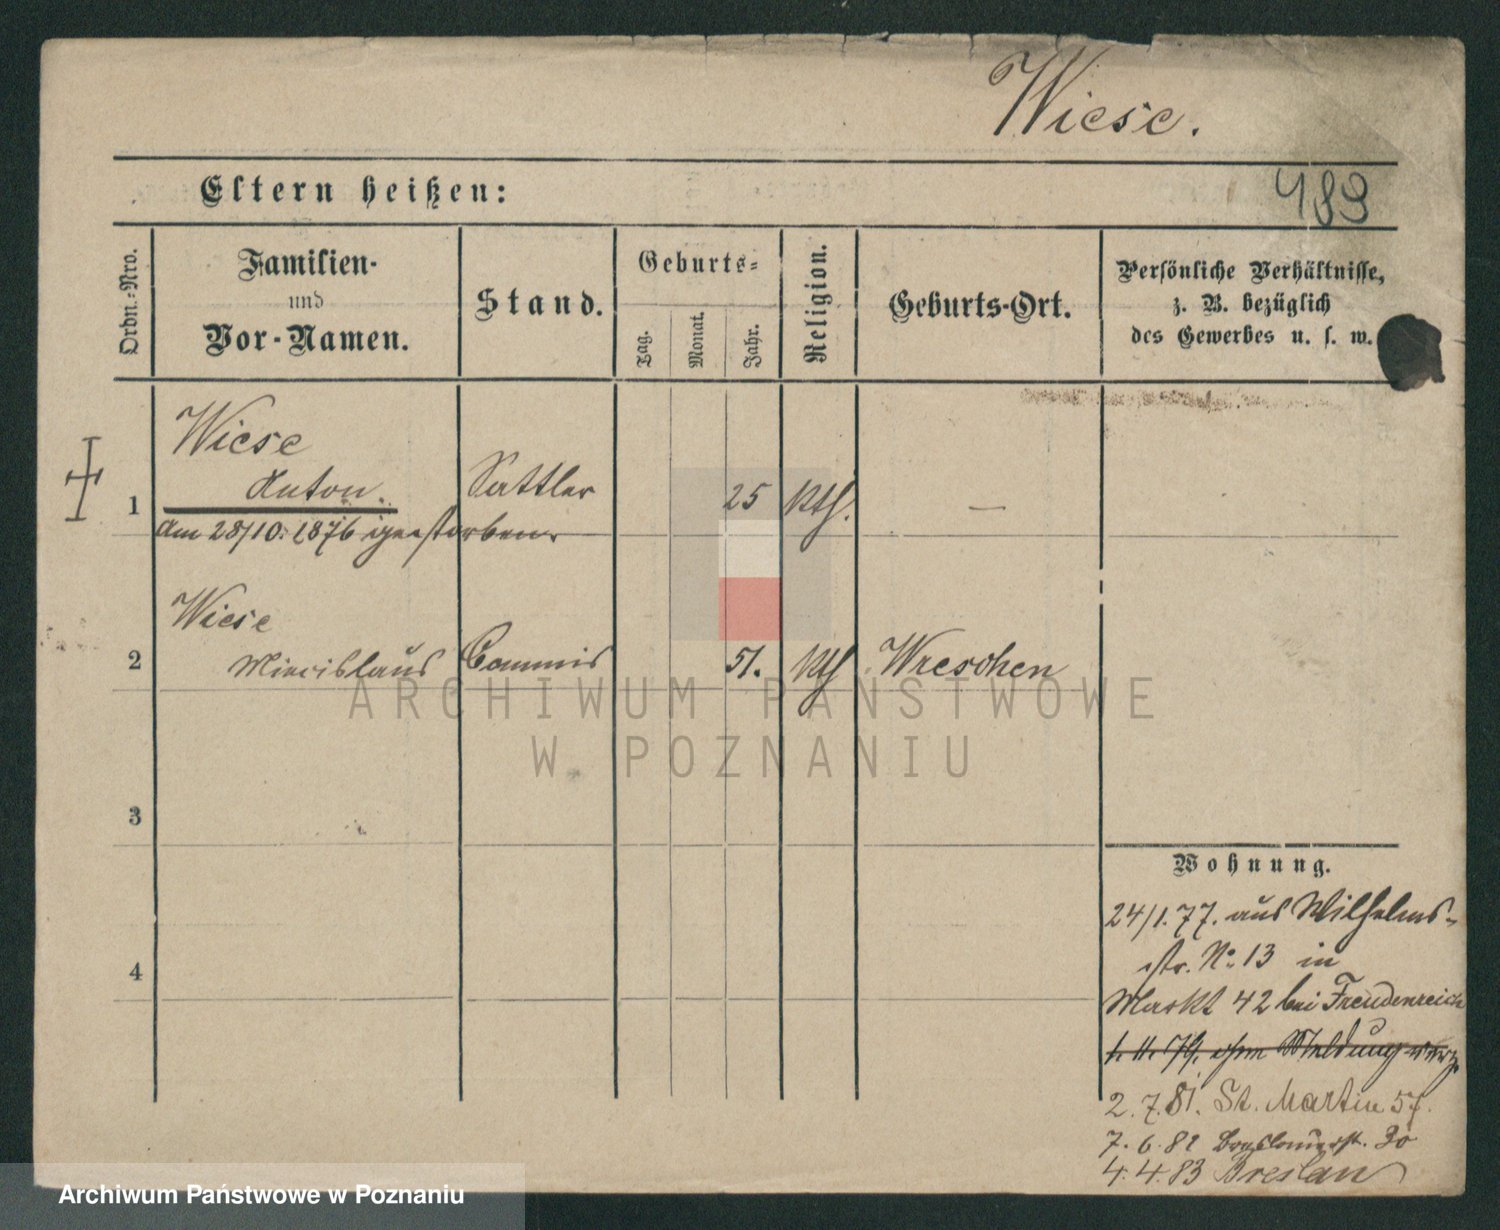 Wiese.
Eltern heißen:
489
Ordn.-Nro.
Familien-
und
Vor-Namen.
Stand.
Geburts-
Tag.
Monat.
Jahr.
Religion.
Geburts-Ort.
Persönliche Verhältnisse,
z. B. bezüglich
des Gewerbes u. s. w.
1
Wiese
Anton.
Sattler
25
kth.
—
Am 28/10. 1876 gestorben.
2
Wiese
Miecislaus
Commis
51.
kth
Wreschen
ARCHIWUM PAŃSTWOWE
W POZNANIU
3
4
Wohnung.
24/1. 77. aus Wilhelms-
str. No. 13 in
Markt 42 bei Freudenreich
1. 11. 79. ohne Meldung verz.
2. 7. 81. St. Martin 57.
7. 6. 82 Breslauerst. 30
4. 4. 83 Breslau
Archiwum Państwowe w Poznaniu